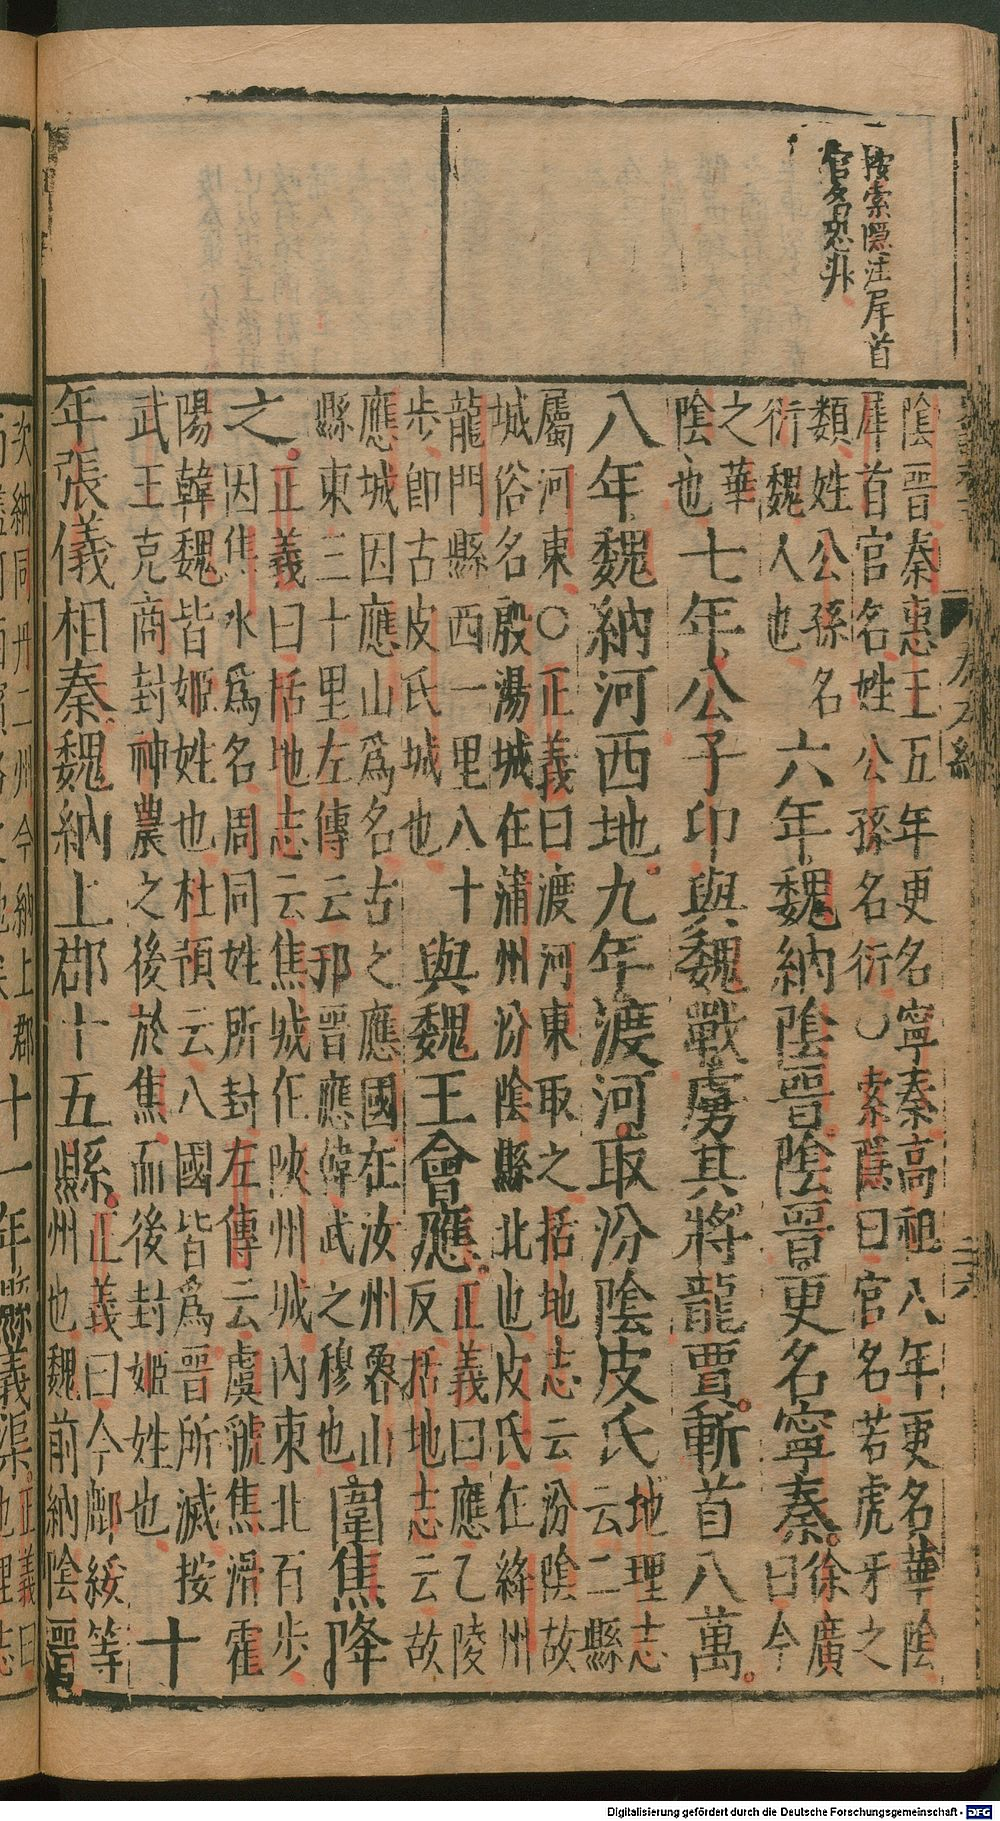 按索隱注犀首
官名恐非
陰晉秦惠王五年更名寧秦高祖八年更名華陰
犀首官名姓公孫名衍〇索隱曰官名若虎牙之
類姓公孫名
衍魏人也
六年魏納陰晉陰晉更名寧秦
徐廣
曰今
之華
陰也
七年公子卬與魏戰虜其將龍賈斬首八萬
八年魏納河西地九年渡河取汾陰皮氏
地理志
云二縣
屬河東〇正義曰渡河東取之括地志云汾陰故
城俗名殷湯城在蒲州汾陰縣北也皮氏在絳州
龍門縣西一里八十
步即古皮氏城也
與魏王會應
正義曰應乙陵
反括地志云故
應城因應山為名古之應國在汝州魯山
縣東三十里左傳云邘晉應韓武之穆也
圍焦降
之
正義曰括地志云焦城在陝州城內東北百步
因焦水為名周同姓所封左傳云虞虢焦滑霍
陽韓魏皆姬姓也杜預云八國皆為晉所滅按
武王克商封神農之後於焦而後封姬姓也
十
年張儀相秦魏納上郡十五縣
正義曰今鄜綏等
州也魏前納陰晉
次納同丹二州今納上郡
十一年縣義渠
正義曰
地理志
Digitalisierung gefördert durch die Deutsche Forschungsgemeinschaft - DFG